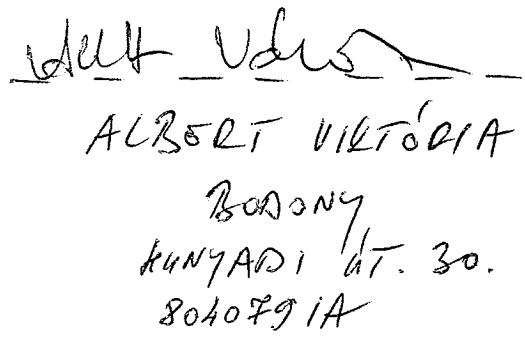 ALBERT VIKTÓRIA
BODONY
HUNYADI ÚT. 30.
804079 IA